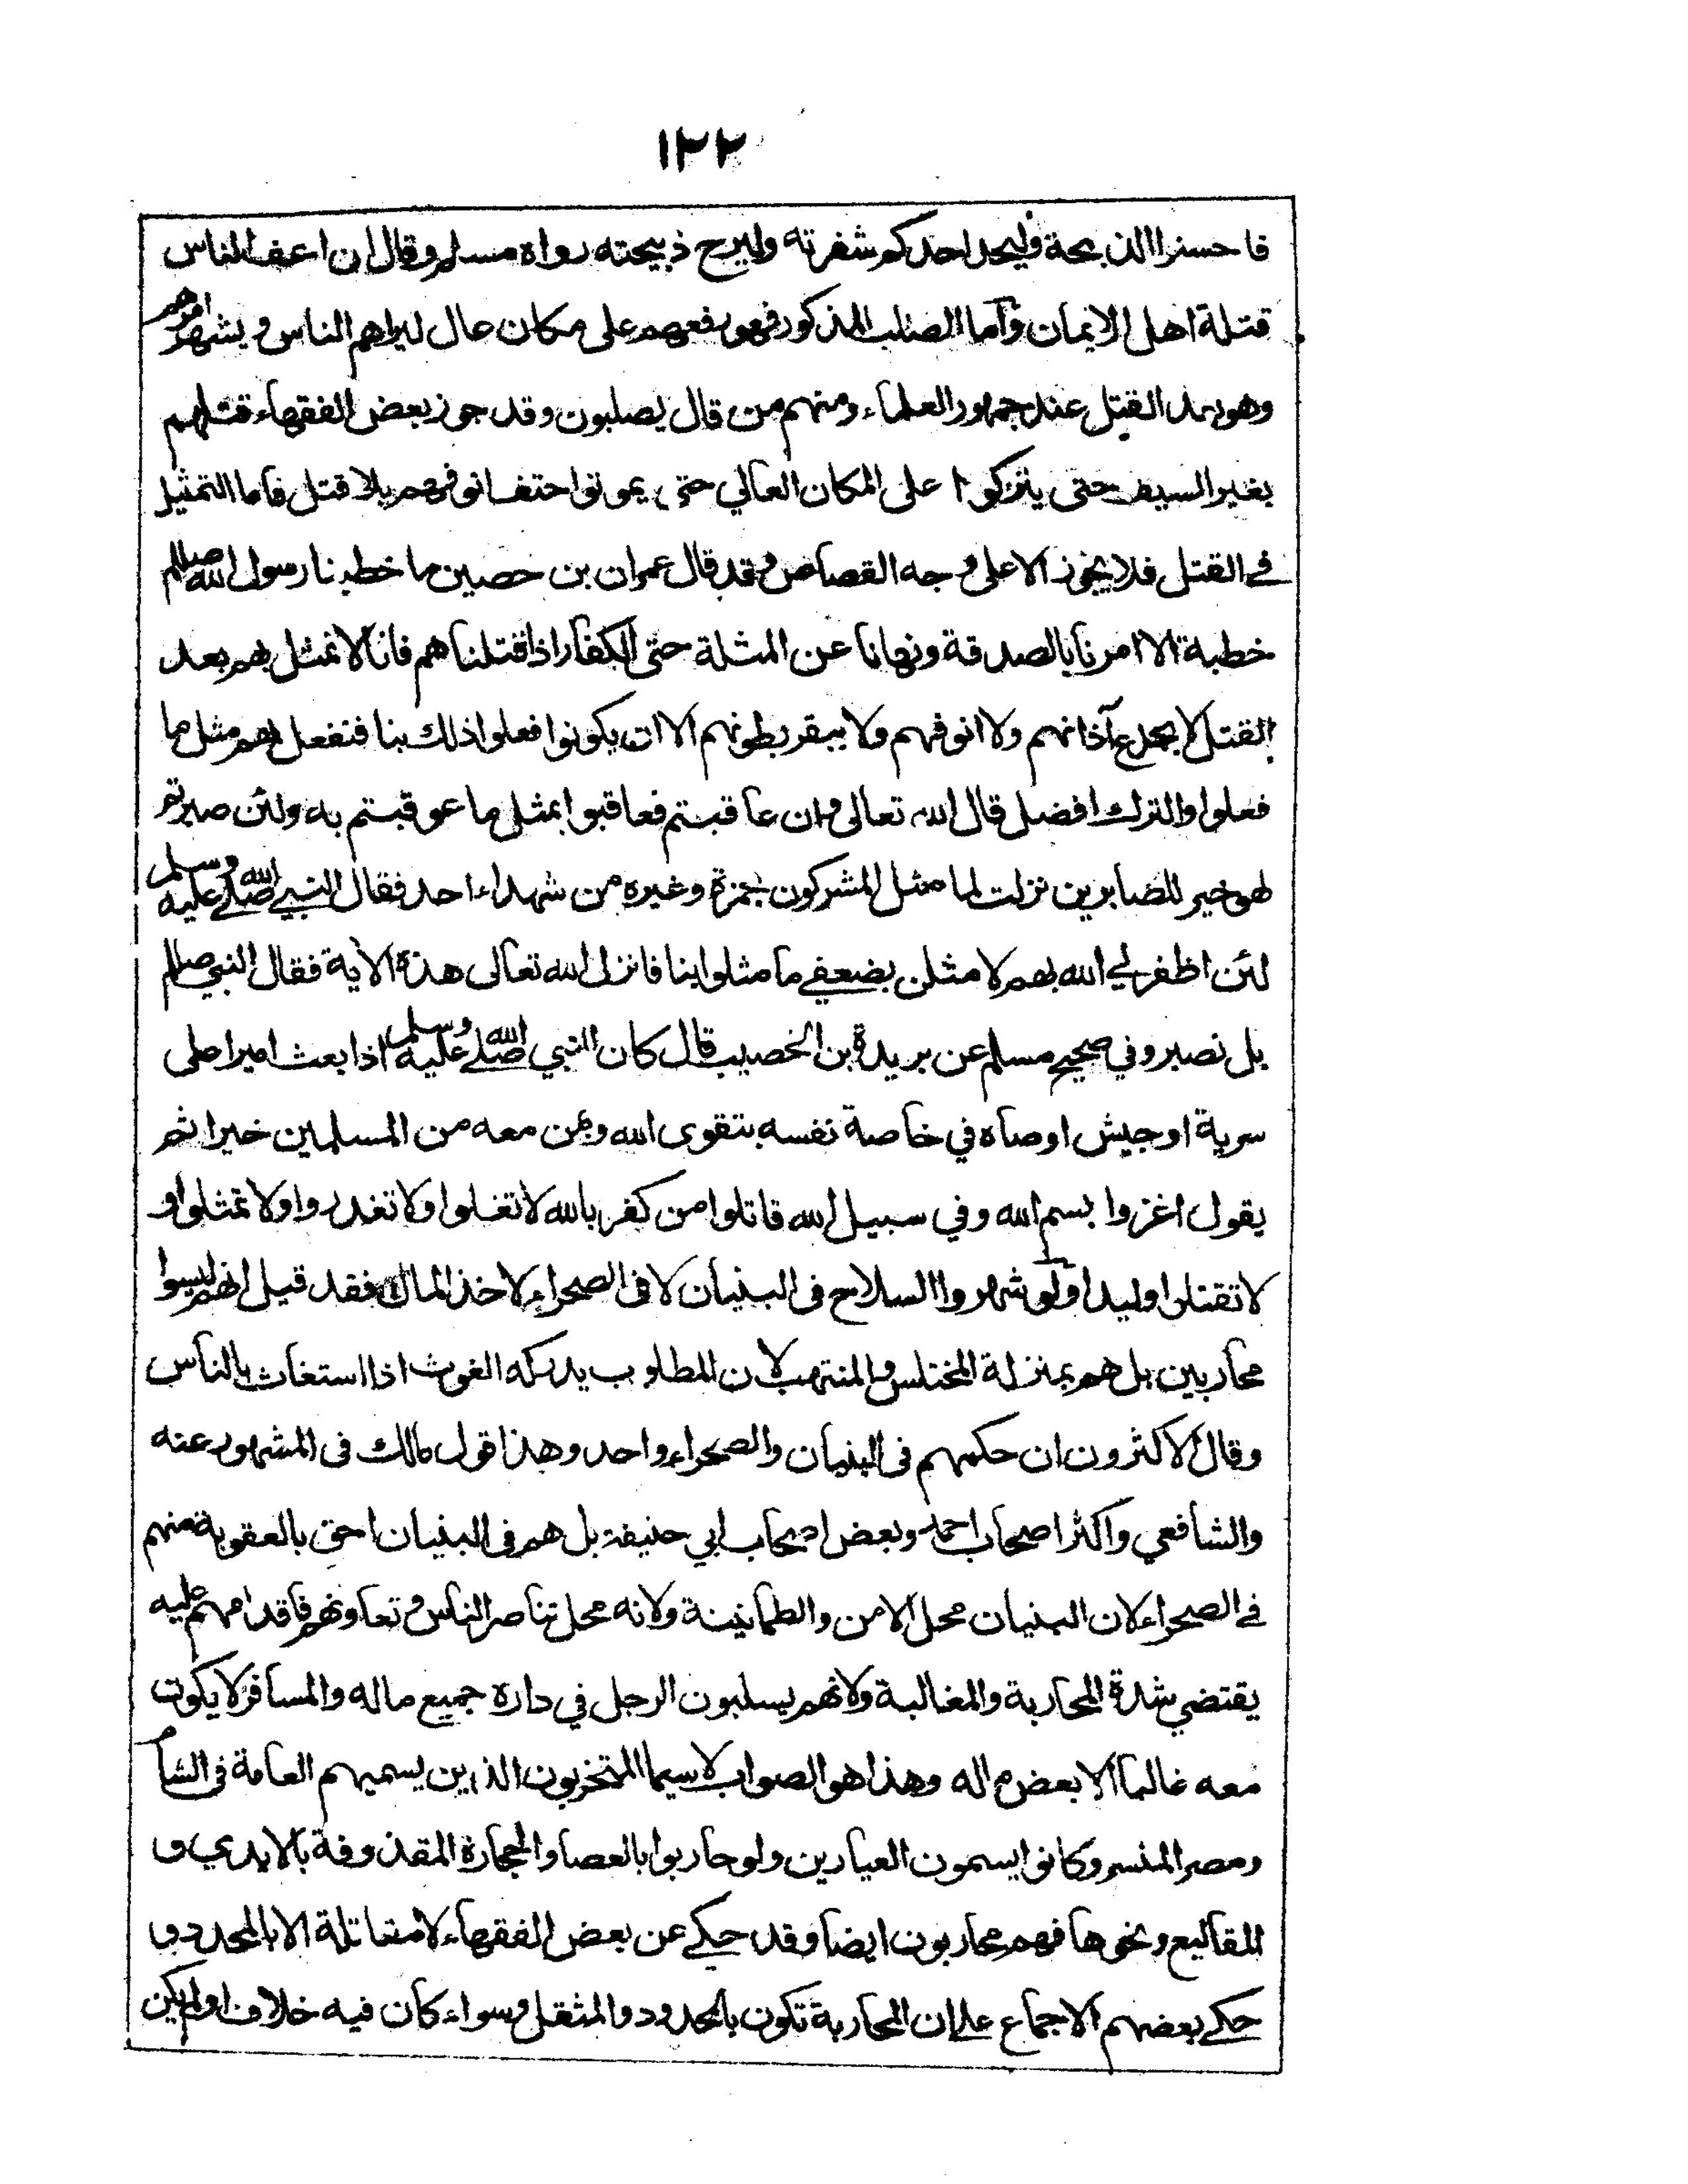 ١٢٢
فاحسنوا الذبحة وليحد احدكم شفرته وليرح ذبيحته رواه مسلم وقال ان اعف الناس
قتلة اهل الايمان وأما الصلب المذكور فهو رفعهم على مكان عال ليراهم الناس ويشهر امرهم
وهو بعد القتل عند جمهور العلماء ومنهم من قال يصلبون وقد جوز بعض الفقهاء قتلهم
بغير السيف حتى يتركوا على المكان العالي حتى يموتوا حتف انوفهم بلا قتل فاما التمثيل
في القتل فلا يجوز الا على وجه القصاص وقد قال عمران بن حصين ما خطبنا رسول الله صللم
خطبة الا امرنا بالصدقة ونهانا عن المثلة حتى الكفار اذا قتلناهم فانا لا نمثل بهم بعد
القتل لا نجدع آذانهم ولا انوفهم ولا نبقر بطونهم الا ان يكونوا فعلوا ذلك بنا فنفعل بهم مثل ما
فعلوا والترك افضل قال الله تعالى وان عاقبتم فعاقبوا بمثل ما عوقبتم به ولئن صبرتم
لهو خير للصابرين نزلت لما مثل المشركون بحمزة وغيره من شهداء احد فقال النبي صلى الله عليه وسلم
لئن اظفرلي الله بهم لامثلن بضعفي ما مثلوا بنا فانزل الله تعالى هذه الاية فقال النبي صللم
بل نصبر وفي صحيح مسلم عن بريدة بن الخصيب قال كان النبي صلى الله عليه وسلم اذا بعث اميرا على
سرية او جيش اوصاه في خاصة نفسه بتقوى الله وبمن معه من المسلمين خيرا ثم
يقول اغزوا بسم الله وفي سبيل الله قاتلوا من كفر بالله لا تغلوا ولا تغدروا ولا تمثلوا و
لا تقتلوا وليدا ولو شهروا السلاح فى البنيان لا فى الصحراء لاخذ المال فقد قيل انهم ليسوا
محاربين بل هم بمنزلة المختلس والمنتهب لان المطلوب يدركه الغوث اذا استغاث بالناس
وقال الاكثرون ان حكمهم فى البنيان والصحراء واحد وهذا قول مالك فى المشهور عنه
والشافعي واكثر اصحاب احمد وبعض اصحاب ابي حنيفة بل هم فى البنيان احق بالعقوبة منهم
في الصحراء لان البنيان محل الامن والطمانينة ولانه محل تناصر الناس وتعاونهم فاقدامهم عليه
يقتضي شدة المحاربة والمغالبة ولانهم يسلبون الرجل في داره جميع ماله والمسافر لا يكون
معه غالبا الا بعض ماله وهذا هو الصواب لا سيما المتحزبون الذين يسميهم العامة فى الشام
ومصر المنسر وكانوا يسمون العيارين ولو حاربوا بالعصا والحجارة المقذوفة بالايدي و
المقاليع ونحوها فهم محاربون ايضا وقد حكي عن بعض الفقهاء لا مقاتلة الا بالمحدد و
حكى بعضهم الاجماع على ان المحاربة تكون بالمحدود والمثقل وسواء كان فيه خلاف او لم يكن